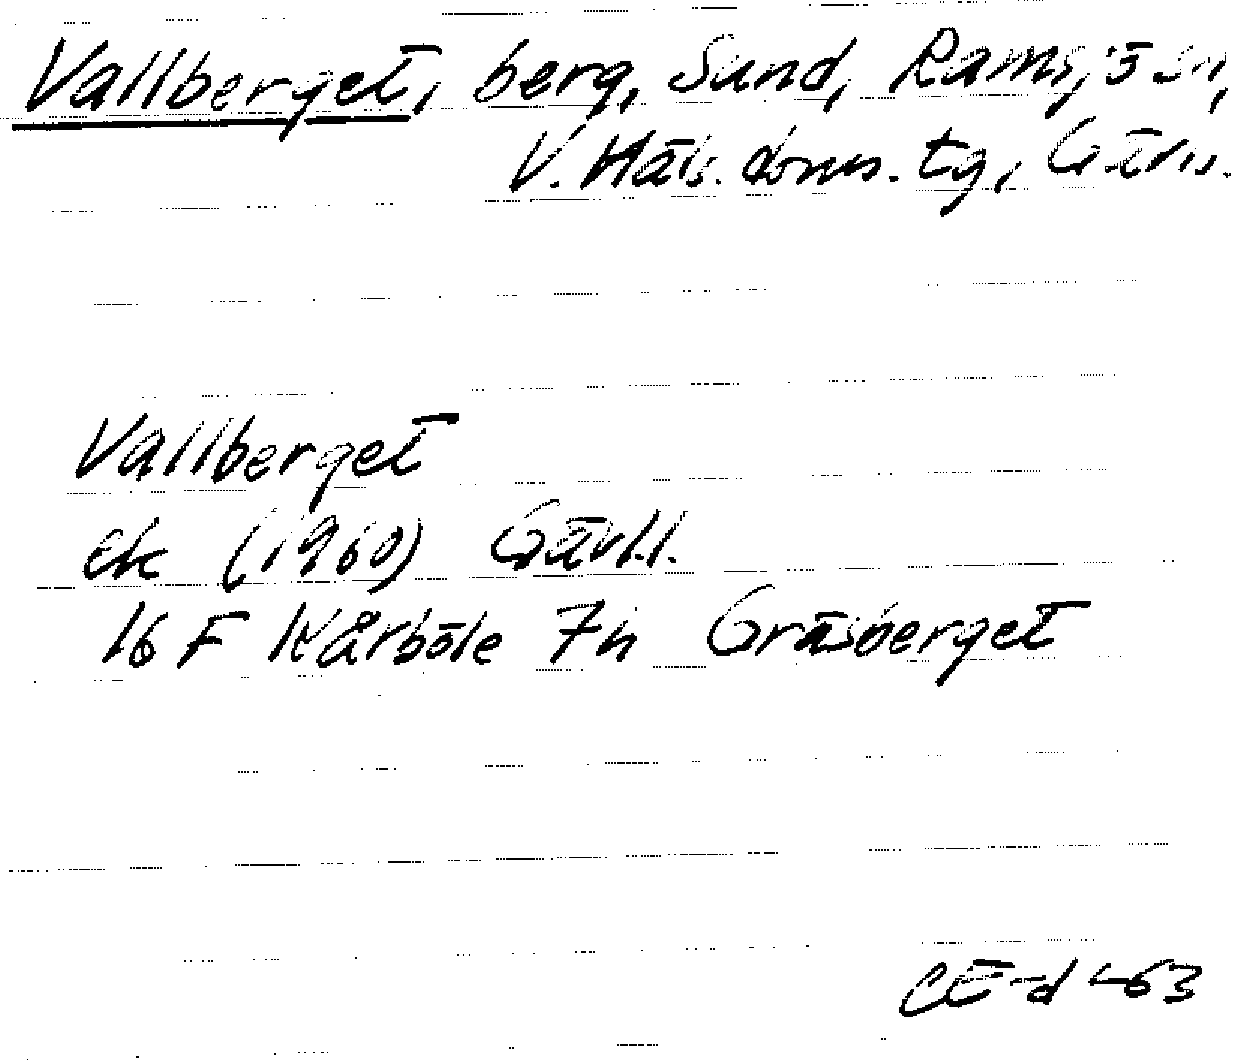 Vallberget, berg, Sund, Ramsjö sn,
V. Häls. doms. tg, Gävls.
Vallberget
ek (1960) Gävl.l.
16 F Kårböle 7h Gräsberget
CE-d -63